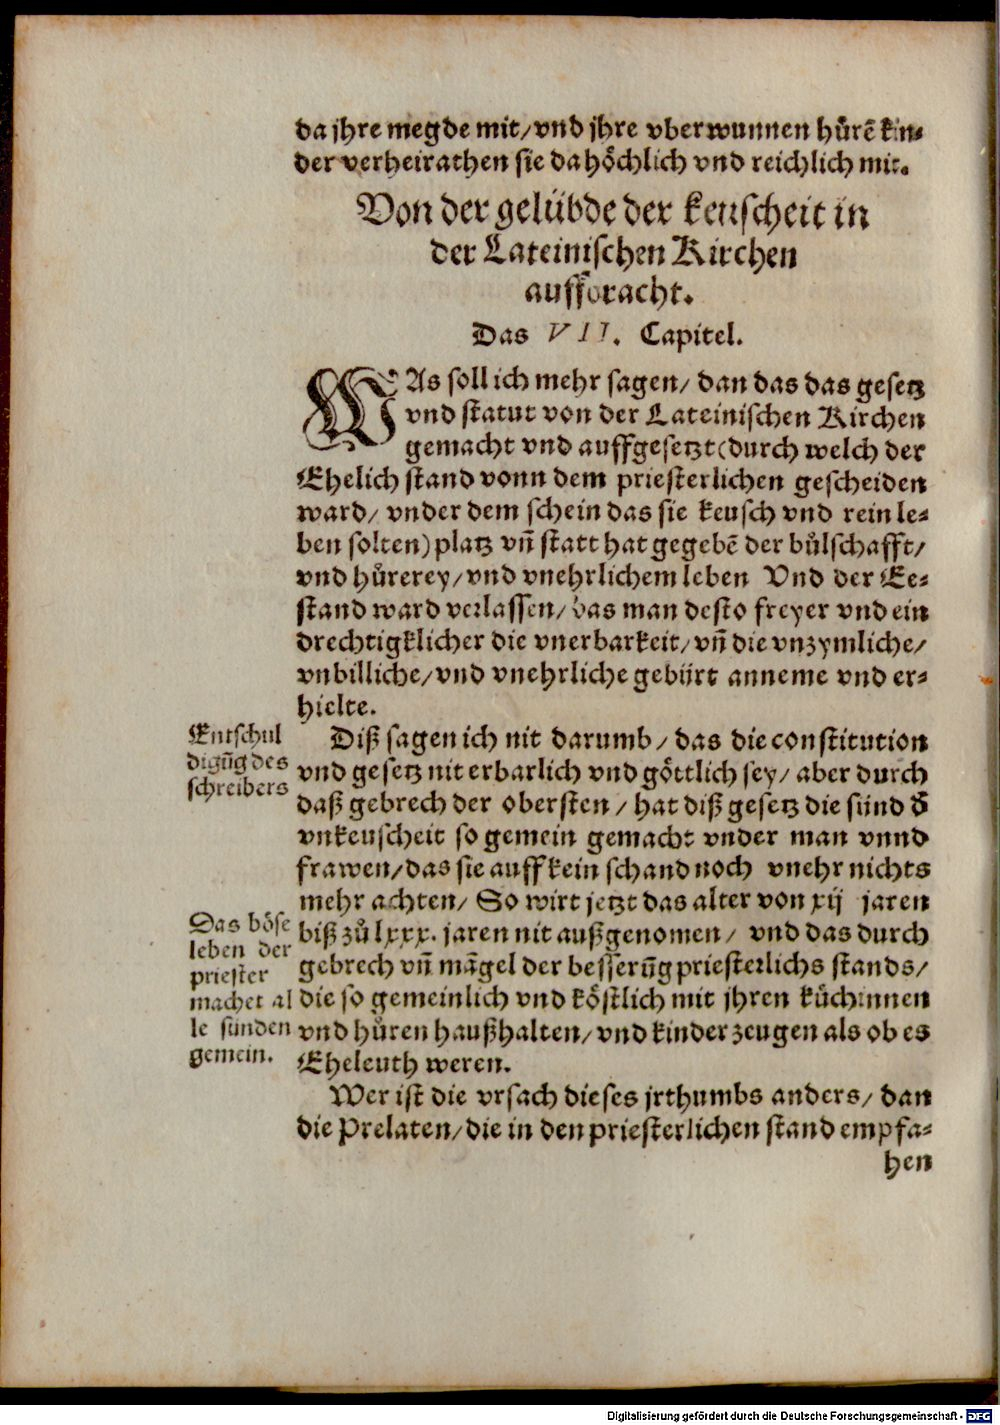 da jhre megde mit/ vnd jhre vberwunnen hůrẽ kin-
der verheirathen sie da höchlich vnd reichlich mit.
Von der gelübde der keuscheit in
der Lateinischen Kirchen
auffbracht.
Das VII. Capitel.
WAs soll ich mehr sagen/ dan das das gesetz
vnd statut von der Lateinischen Kirchen
gemacht vnd auffgesetzt (durch welch der
Ehelich stand vonn dem priesterlichen gescheiden
ward/ vnder dem schein das sie keusch vnd rein le-
ben solten) platz vñ statt hat gegebẽ der bůlschafft/
vnd hůrerey/ vnd vnehrlichem leben Vnd der Ee-
stand ward verlassen/ das man desto freyer vnd ein
drechtigklicher die vnerbarkeit/ vñ die vnzymliche/
vnbilliche/ vnd vnehrliche gebürt anneme vnd er-
hielte.
Entschul
digũg des
schreibers
Diß sagen ich nit darumb/ das die constitution
vnd gesetz nit erbarlich vnd göttlich sey/ aber durch
daß gebrech der obersten/ hat diß gesetz die sünd d̄
vnkeuscheit so gemein gemacht vnder man vnnd
frawen/ das sie auff kein schand noch vnehr nichts
mehr achten/ So wirt jetzt das alter von xij jaren
biß zů lxxx. jaren nit außgenomen/ vnd das durch
gebrech vñ mãgel der besserũg priesterlichs stands/
die so gemeinlich vnd köstlich mit jhren küchinnen
vnd hůren haußhalten/ vnd kinder zeugen als ob es
Eheleuth weren.
Das böse
leben der
priester
machet al
le sünden
gemein.
Wer ist die vrsach dieses jrthumbs anders/ dan
die Prelaten/ die in den priesterlichen stand empfa-
hen
Digitalisierung gefördert durch die Deutsche Forschungsgemeinschaft - DFG